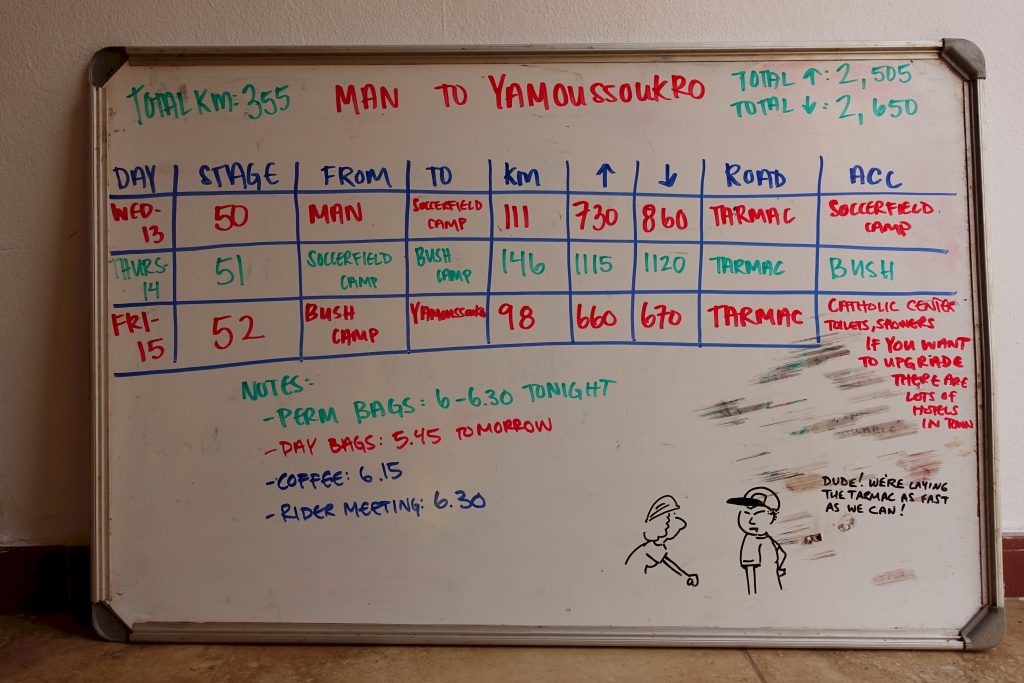 TOTAL KM: 355 MAN TO YAMOUSSOUKRO TOTAL ↑: 2,505
TOTAL ↓: 2,650
DAY STAGE FROM TO KM ↑ ↓ ROAD ACC
WED-13 50 MAN SOCCERFIELD CAMP 111 730 860 TARMAC SOCCERFIELD CAMP
THURS-14 51 SOCCERFIELD CAMP BUSH CAMP 146 1115 1120 TARMAC BUSH
FRI-15 52 BUSH CAMP YAMOUSSOUKRO 98 660 670 TARMAC CATHOLIC CENTER
TOILETS, SHOWERS
IF YOU WANT
TO UPGRADE
THERE ARE
LOTS OF
HOTELS
IN TOWN
NOTES:-
- PERM BAGS: 6-6.30 TONIGHT
- DAY BAGS: 5.45 TOMORROW
- COFFEE: 6.15
- RIDER MEETING: 6.30
DUDE! WE'RE LAYING
THE TARMAC AS FAST
AS WE CAN!